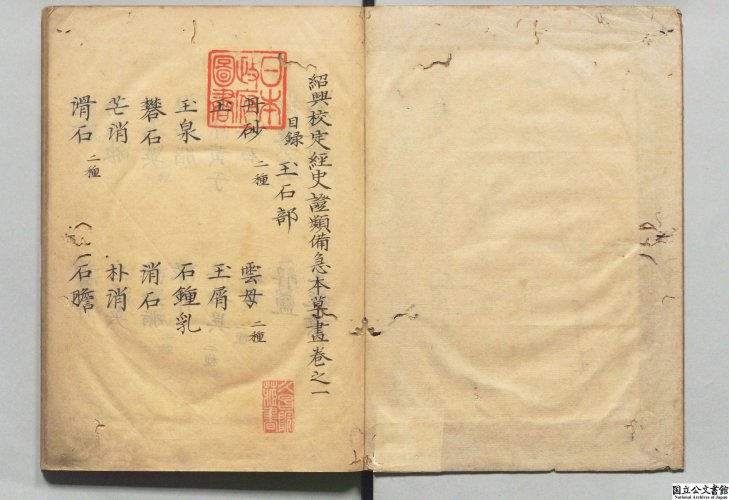 紹興校定經史證類備急本草畫卷之一
目録 玉石部
丹砂 二種 雲母 二種
玉 玉屑
玉泉 石鍾乳
礬石 消石
芒消 朴消
滑石 二種 石膽
日本政府圖書
国立公文書館
National Archives of Japan